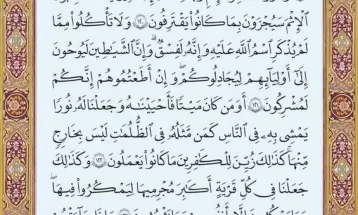 ٱلْإِثْمَ سَيُجْزَوْنَ بِمَا كَانُوا۟ يَقْتَرِفُونَ ۝١٢٠ وَلَا تَأْكُلُوا۟ مِمَّا
لَمْ يُذْكَرِ ٱسْمُ ٱللَّهِ عَلَيْهِ وَإِنَّهُۥ لَفِسْقٌ ۗ وَإِنَّ ٱلشَّيَٰطِينَ لَيُوحُونَ
إِلَىٰٓ أَوْلِيَآئِهِمْ لِيُجَٰدِلُوكُمْ ۖ وَإِنْ أَطَعْتُمُوهُمْ إِنَّكُمْ
لَمُشْرِكُونَ ۝١٢١ أَوَمَن كَانَ مَيْتًا فَأَحْيَيْنَٰهُ وَجَعَلْنَا لَهُۥ نُورًا
يَمْشِى بِهِۦ فِى ٱلنَّاسِ كَمَن مَّثَلُهُۥ فِى ٱلظُّلُمَٰتِ لَيْسَ بِخَارِجٍ
مِّنْهَا ۚ كَذَٰلِكَ زُيِّنَ لِلْكَٰفِرِينَ مَا كَانُوا۟ يَعْمَلُونَ ۝١٢٢ وَكَذَٰلِكَ
جَعَلْنَا فِى كُلِّ قَرْيَةٍ أَكَٰبِرَ مُجْرِمِيهَا لِيَمْكُرُوا۟ فِيهَا ۖ